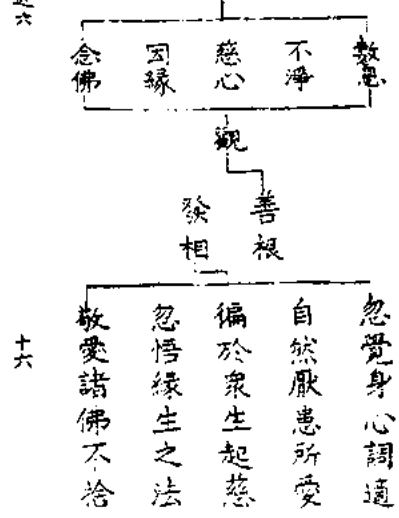 數息
不淨
慈心
因緣
念佛
觀
善根
發相
忽覺身心調適
自然厭患所愛
徧於衆生起慈
忽悟緣生之法
敬愛諸佛不捨
六
十六